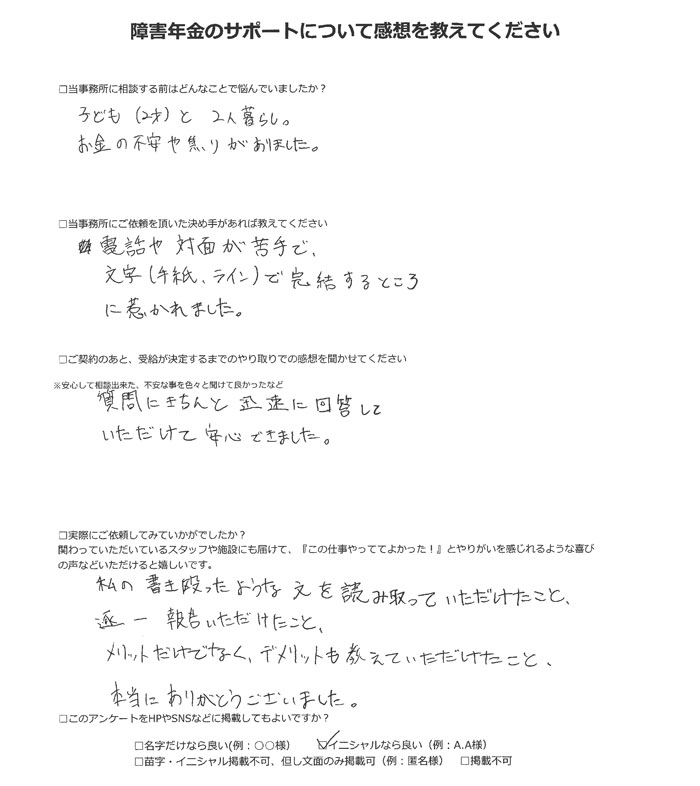 障害年金のサポートについて感想を教えてください
□当事務所に相談する前はどんなことで悩んでいましたか？
子ども（2才）と 2人暮らし。
お金の不安や焦りがありました。
□当事務所にご依頼を頂いた決め手があれば教えてください
電話や対面が苦手で、
文字（手紙、ライン）で完結するところ
に惹かれました。
□ご契約のあと、受給が決定するまでのやり取りでの感想を聞かせてください
※安心して相談出来た、不安な事を色々と聞けて良かったなど
質問にきちんと迅速に回答して
いただけて安心できました。
□実際にご依頼してみていかがでしたか？
関わっていただいているスタッフや施設にも届けて、『この仕事やっててよかった！』とやりがいを感じれるような喜び
の声などいただけると嬉しいです。
私の書き殴ったような文を読み取っていただけたこと、
逐一報告いただけたこと、
メリットだけでなく、デメリットも教えていただけたこと、
本当にありがとうございました。
□このアンケートをHPやSNSなどに掲載してもよいですか？
□名字だけなら良い(例：〇〇様） ☑イニシャルなら良い（例：A.A様）
□苗字・イニシャル掲載不可、但し文面のみ掲載可（例：匿名様） □掲載不可